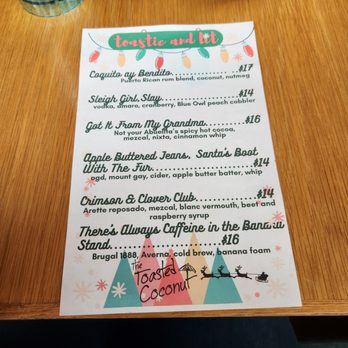 toastie and lit
Coquito ay Bendito..............$17
Puerto Rican rum blend, coconut, nutmeg
Sleigh Girl, Slay....................$14
vodka, amaro, cranberry, Blue Owl peach cobbler
Got It From My Grandma..........$16
Not your Abuelita's spicy hot cocoa,
mezcal, nixta, cinnamon whip
Apple Buttered Jeans, Santa's Boot
With The Fur..........................$14
ogd, mount gay, cider, apple butter batter, whip
Crimson & Clover Club...........$14
Arette reposado, mezcal, blanc vermouth, beet and
raspberry syrup
There's Always Caffeine in the Banana
Stand.........................$16
Brugal 1888, Averna, cold brew, banana foam
the
Toasted
Coconut